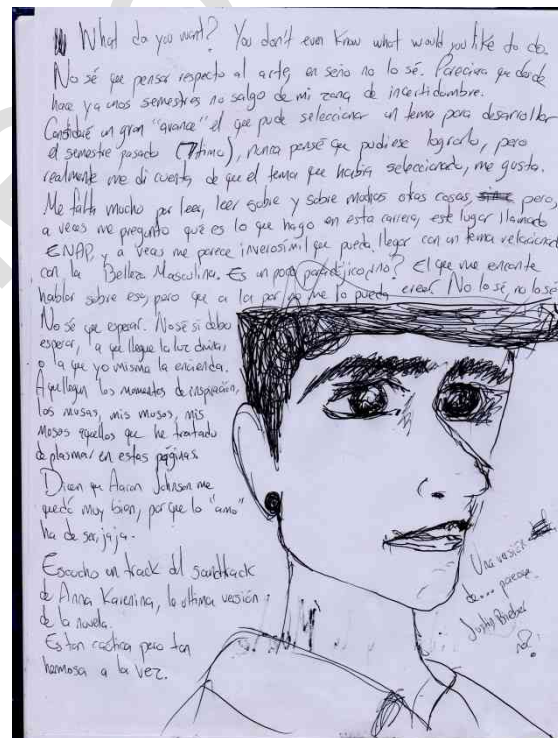 What do you want? You don't even know what would you like to do.
No sé que pensar respecto al arte, en serio no lo sé. Pareciera que desde
hace ya unos semestres no salgo de mi zona de incertidumbre.
Consideré un gran "avance" el que pude seleccionar un tema para desarrollar
el semestre pasado (7timo), nunca pensé que pudiese lograrlo, pero
realmente me di cuenta de que el tema que había seleccionado, me gusta.
Me falta mucho por leer, leer sobre y sobre muchas otras cosas, pero,
a veces me pregunto qué es lo que hago en esta carrera, este lugar llamado
ENAP, y a veces me parece inverosímil que pueda llegar con un tema relacionado
con la Belleza Masculina. Es un poco paradójico ¿no? El que me encante
hablar sobre eso, pero que a la par no me lo pueda creer. No lo sé, no lo sé
No sé que esperar. No sé si debo
esperar, a que llegue la luz divina,
o la que yo misma la encienda.
A que llegan los momentos de inspiración,
las musas, mis musos, mis
musos aquellos que he tratado
de plasmar en estas páginas.
Dicen que Aaron Johnson me
quedó muy bien, porque lo "amo"
ha de ser, jaja.
Escucho un track del soundtrack
de Anna Karenina, la última versión
de la novela.
Es tan pero tan
hermosa a la vez.
Una versión
de... parece
Justin Bieber
no?